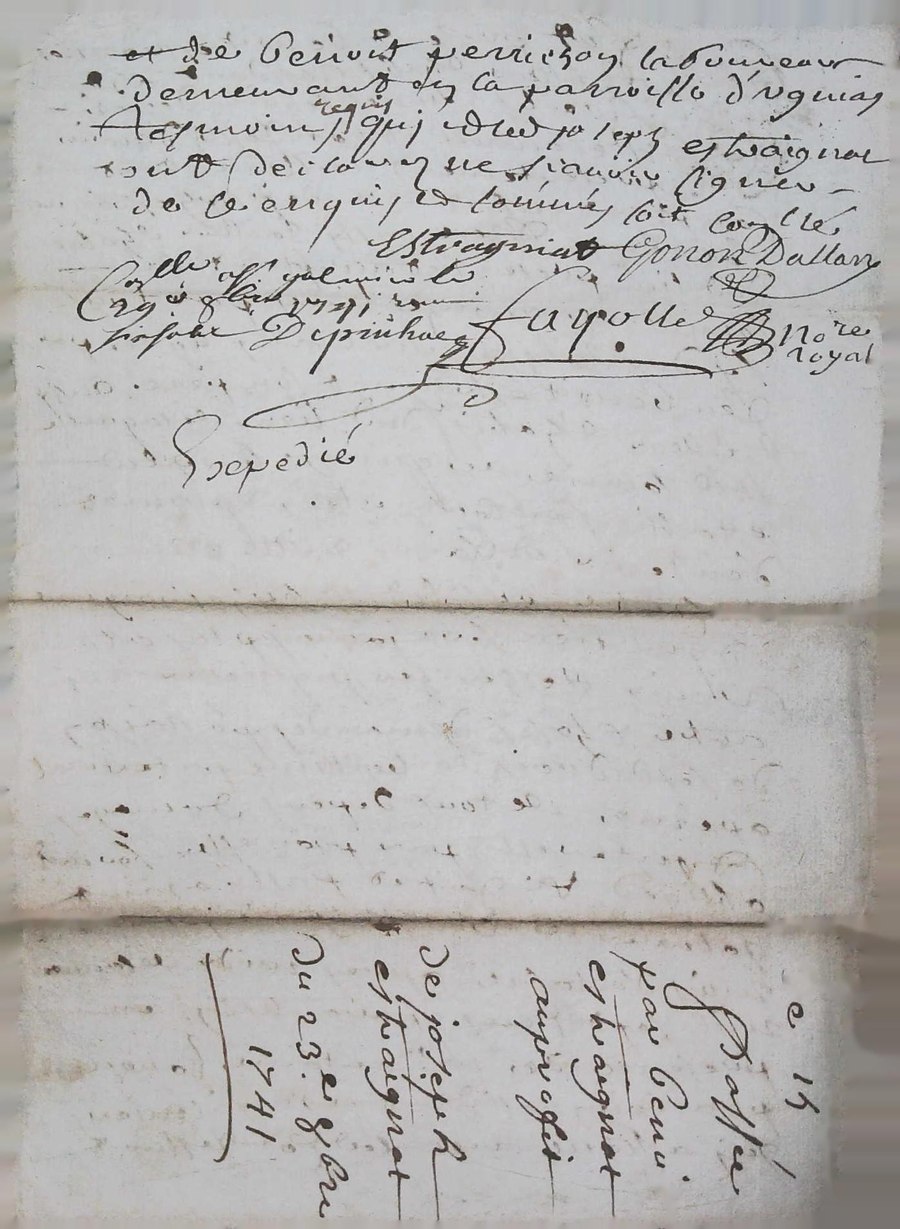 et de benoit perrichon laboureur
demeurant en la parroisse d'ugnias
requis
tesmoins qui et led joseph estraignat
ont declaré ne scavoir signer
de ce enquis et sommés soit contlé
Estragniat Gonon Dallary
Collé a St galmier le
29e 9bre 1741
Depinhac fayolle Nore
royal
Expedié
c 15
par benoi
estraignat
au proffit
de joseph
estraignat
du 23e 9bre
1741